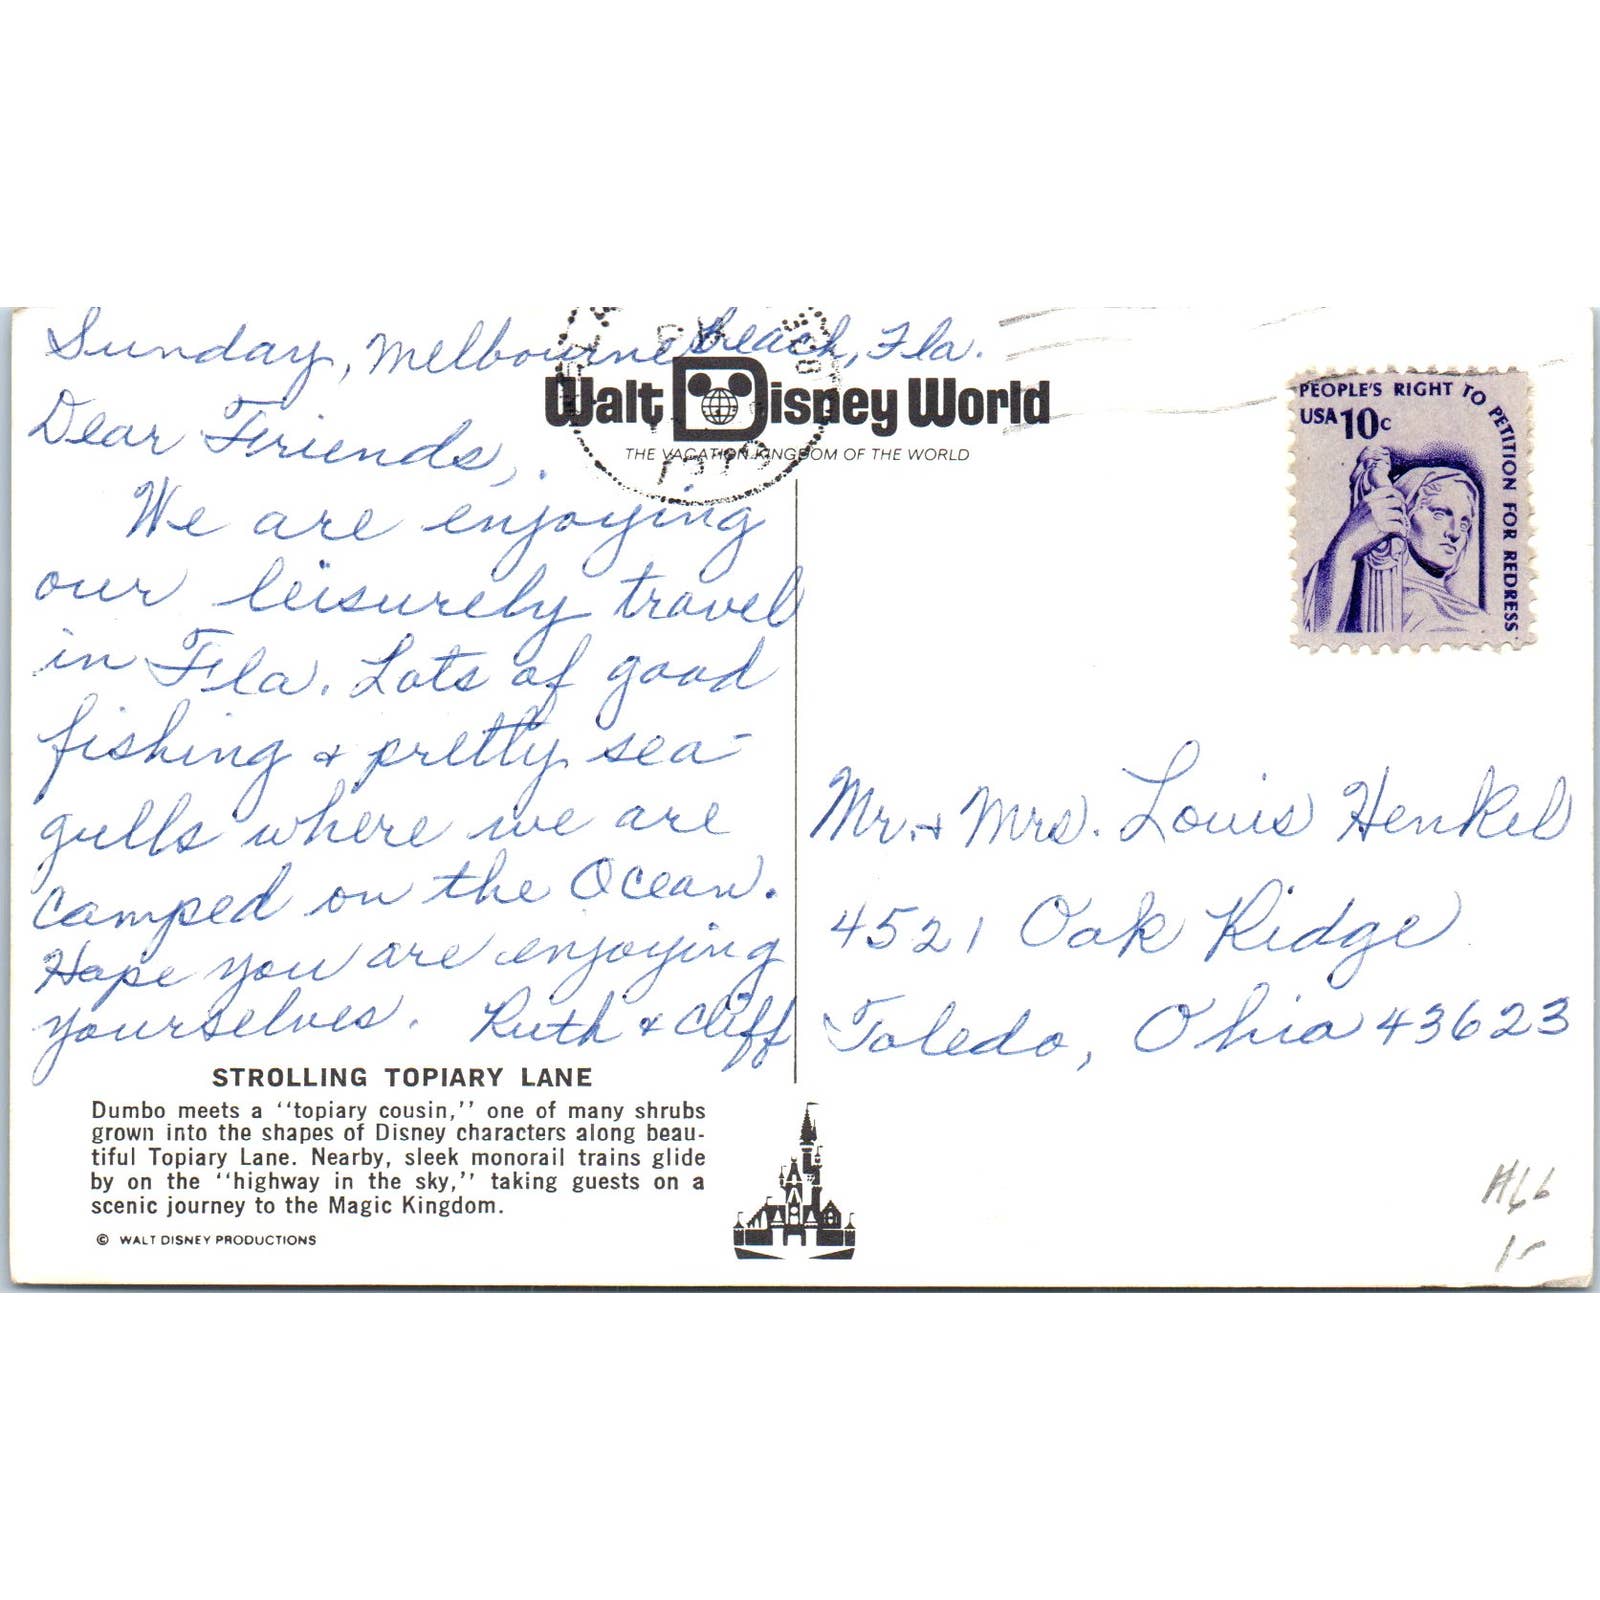 Sunday, Melbourne Beach, Fla.
Walt Disney World
THE VACATION KINGDOM OF THE WORLD
1979
Dear Friends,
We are enjoying
our leisurely travel
in Fla. Lots of good
fishing & pretty sea-
gulls where we are
camped on the Ocean.
Hope you are enjoying
yourselves. Ruth & Cliff
PEOPLE'S RIGHT TO PETITION FOR REDRESS
USA 10c
Mr. & Mrs. Louis Henkel
4521 Oak Ridge
Toledo, Ohio 43623
STROLLING TOPIARY LANE
Dumbo meets a "topiary cousin," one of many shrubs
grown into the shapes of Disney characters along beau-
tiful Topiary Lane. Nearby, sleek monorail trains glide
by on the "highway in the sky," taking guests on a
scenic journey to the Magic Kingdom.
© WALT DISNEY PRODUCTIONS